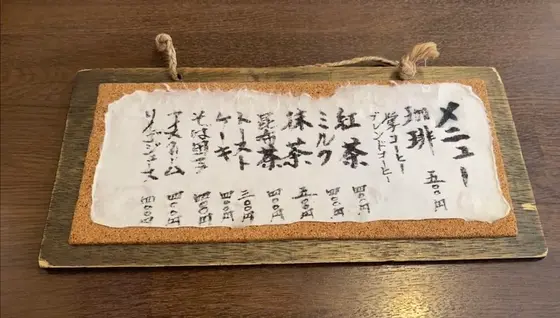 メニュー
珈琲 五〇〇円
ブレンドコーヒー
紅茶 四〇〇円
ミルク 四〇〇円
抹茶 五〇〇円
昆布茶 四〇〇円
トースト 三〇〇円
ケーキ 四〇〇円
そば団子
アイスクリーム 四〇〇円
リンゴジュース 四〇〇円